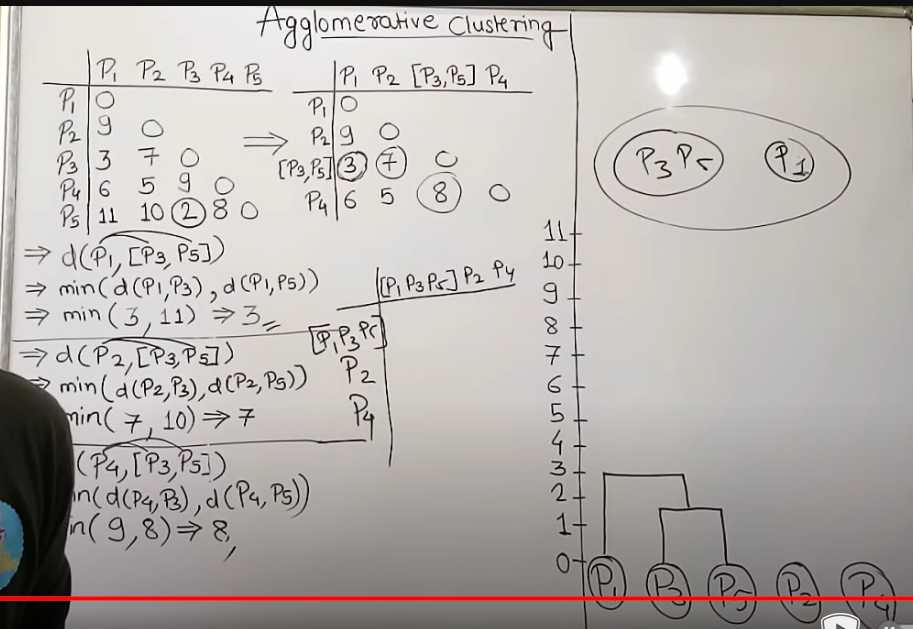 Agglomerative Clustering
P1 P2 P3 P4 P5
P1 0
P2 9 0
P3 3 7 0
P4 6 5 9 0
P5 11 10 2 8 0
⇒
P1 P2 [P3,P5] P4
P1 0
P2 9 0
[P3,P5] 3 7 0
P4 6 5 8 0
⇒ d(P1,[P3,P5])
⇒ min(d(P1,P3),d(P1,P5))
⇒ min(3,11) ⇒ 3
⇒ d(P2,[P3,P5])
⇒ min(d(P2,P3),d(P2,P5))
min(7,10) ⇒ 7
(P4,[P3,P5])
in(d(P4,P3),d(P4,P5))
in(9,8) ⇒ 8,
[P1 P3 P5] P2 P4
[P1 P3 P5]
P2
P4
P3 P5 P1
11
10
9
8
7
6
5
4
3
2
1
0
P1 P3 P5 P2 P4